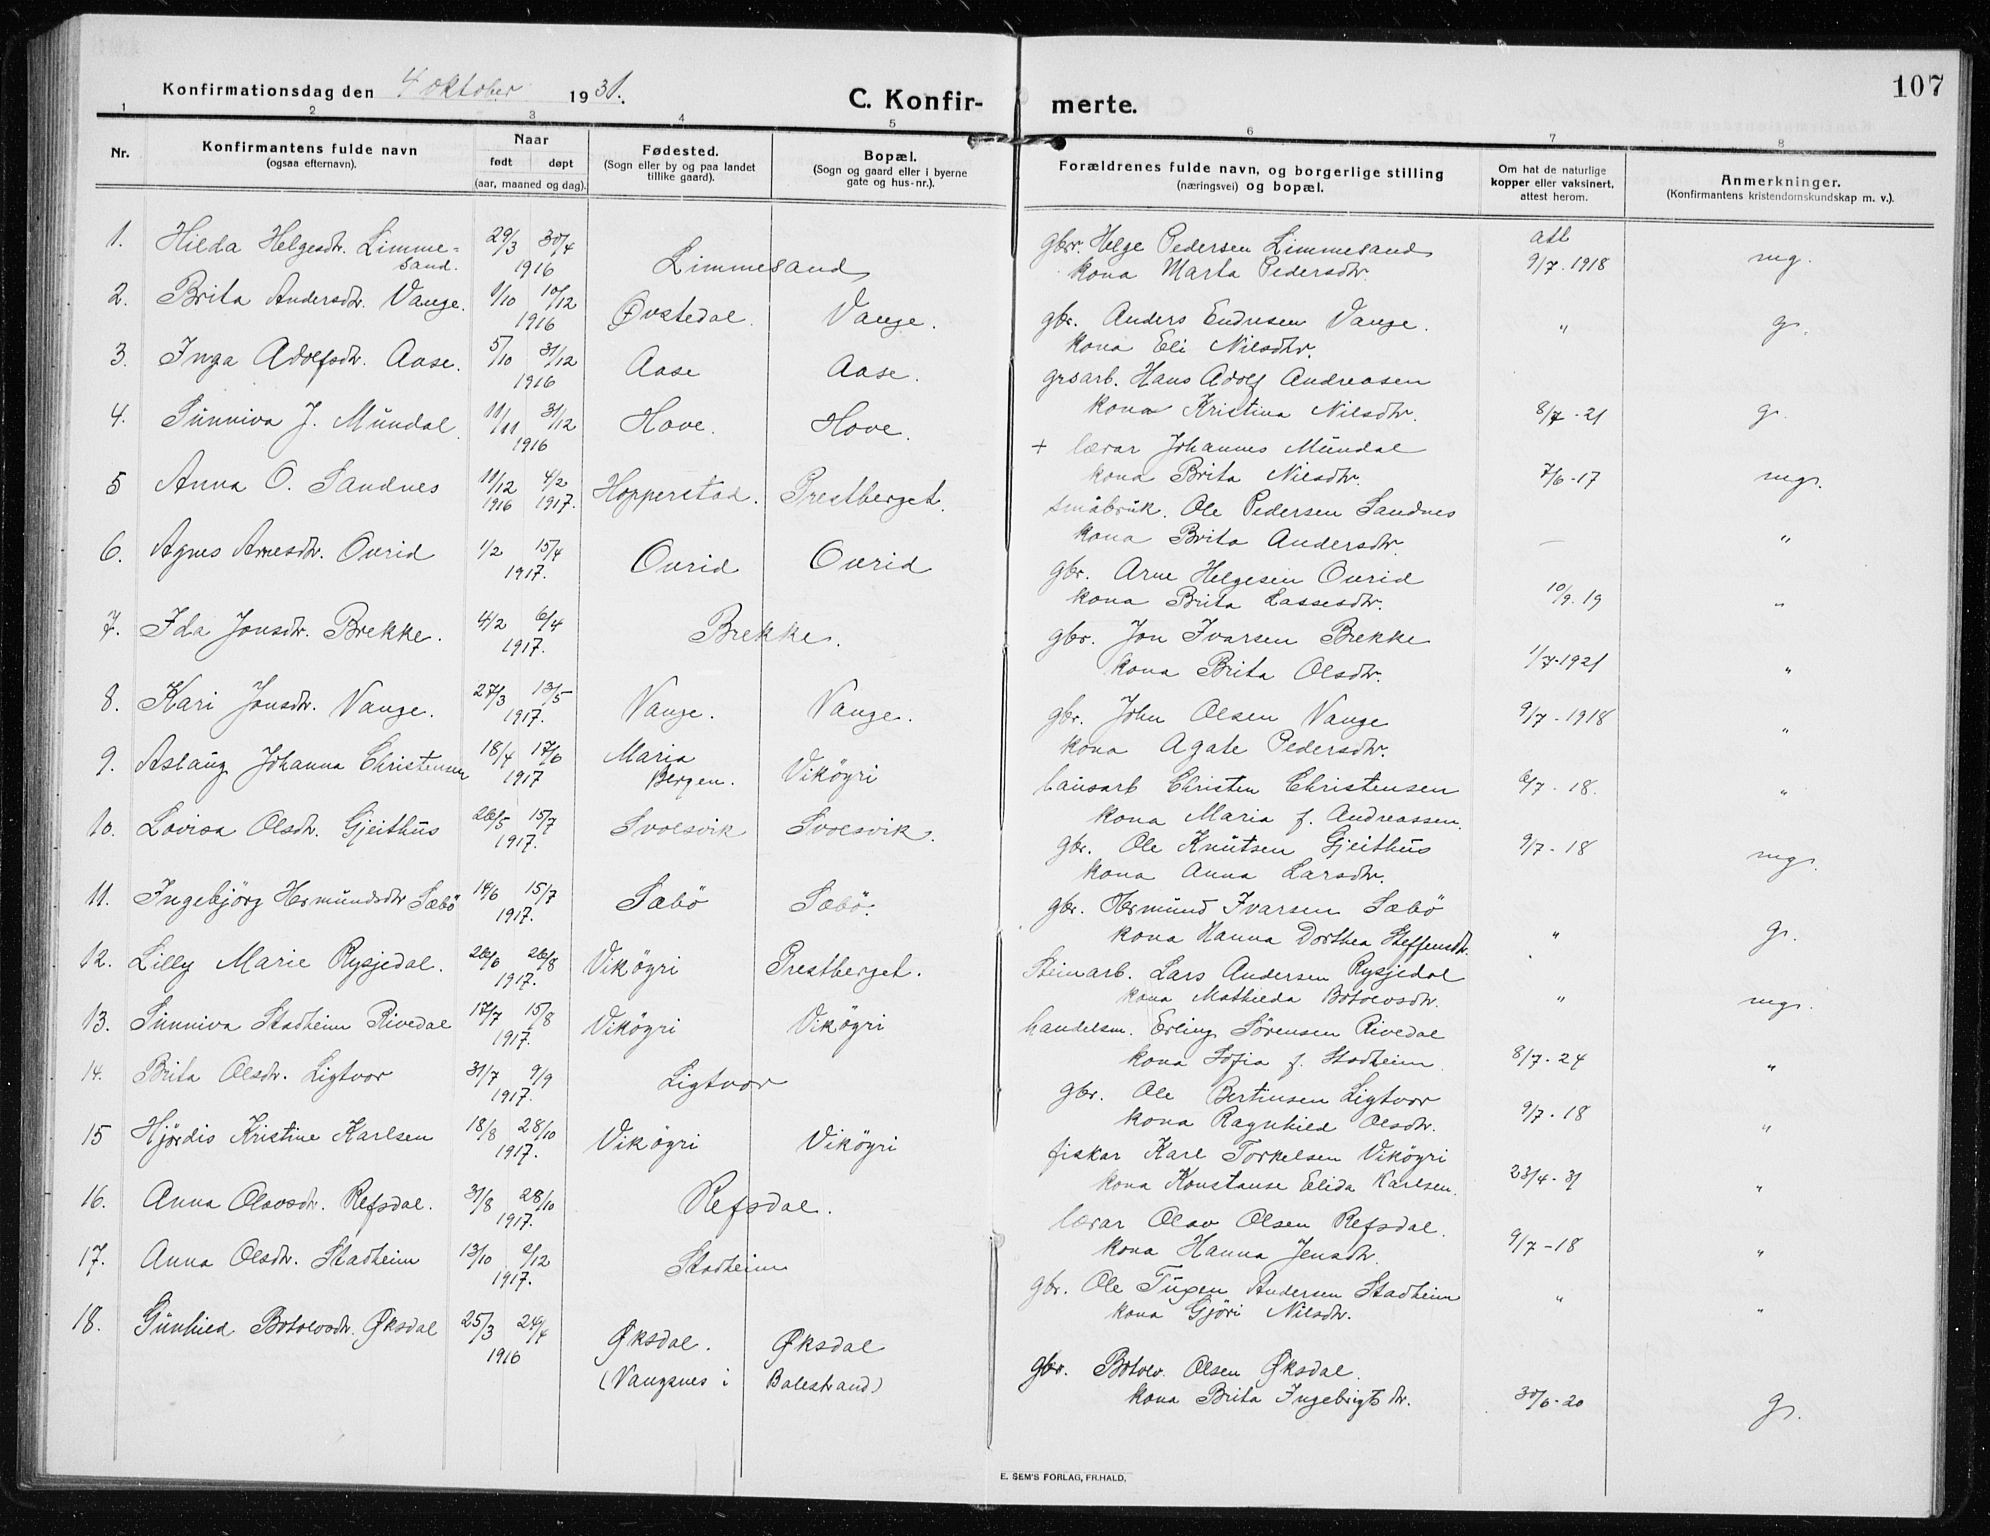 107
Konfirmationsdag den 4 oktober 1931.
C. Konfir- merte.
1 2 3 4 5 6 7 8
Nr.
Konfirmantens fulde navn
(ogsaa efternavn).
Naar
født døpt
(aar, maaned og dag).
Fødested.
(Sogn eller by og paa landet
tillike gaard).
Bopæl.
(Sogn og gaard eller i byerne
gate og hus-nr.).
Forældrenes fulde navn, og borgerlige stilling
(næringsvei) og bopæl.
Om hat de naturlige
kopper eller vaksinert,
attest herom.
Anmerkninger.
(Konfirmantens kristendomskundskap m. v.).
1. Hilda Helgesdtr. Limme= 29/3 30/4 gbr. Helge Pedersen Limmesand att
sand. 1916 Limmesand kona Marta Pedersdtr. 9/7-1918 mg.
2. Brita Andersdtr. Vange. 1/10 10/12 Øvstedal. Vange. gbr. Anders Endresen Vange. " g.
1916 kona Eli Nilsdtr.
3. Inga Adolfsdtr. Aase. 5/10 31/12 Aase Aase. grsarb. Hans Adolf Andreasen
1916 kona Kristina Nilsdtr. 8/7-21 g.
4. Sunniva J. Mundal 11/11 31/12 Hove. Hove. + lærar Johannes Mundal
1916 kona Brita Nilsdtr. 7/6-17 mg.
5 Anna O. Sandnes 11/12 4/2 Hopperstad. Prestberget. småbruk. Ole Pedersen Sandnes
1916 1917. kona Brita Andersdtr. — "
6. Agnes Arnesdtr. Ovrid 1/2 15/4 Ovrid Ovrid gbr. Arne Helgesen Ovrid
1917. kona Brita Lassesdtr. 10/9.19 "
7. Ida Jonsdtr. Brekke. 4/2 6/4 Brekke. gbr. Jon Ivarsen Brekke
1917. kona Brita Olsdtr. 1/7-1921 "
8. Kari Jonsdtr. Vange. 27/3 13/5 Vange. Vange. gbr. John Olsen Vange 9/7-1918
1917. kona Agate Pedersdtr. "
9. Aslaug Johanna Christensen 18/4 17/6 Maria Vikøyri lausarb Christen Christensen 6/7-18. "
1917 Bergen. kona Maria f. Andreassen.
10. Lovisa Olsdtr. Gjeithus 26/5 15/7 Svolsvik Svolsvik. gbr. Ole Knutsen Gjeithus 9/7-18 mg.
1917. kona Anna Larsdtr.
11. Ingebjörg Hermundsdtr Sæbö 14/6 15/7 Sæbö Sæbö. gbr. Hermund Ivarsen Sæbö
1917. kona Hanna Dorthea Steffensdtr. " g.
12. Lilly Marie Rysjedal. 26/6 26/8 Viköyri Prestberget. Steinarb. Lars Andersen Rysjedal
1917. kona Mathilda Botolvsdtr. " mg.
13. Sunniva Stadheim Rivedal 17/7 15/8 Viköyri Viköyri handelsm. Erling Sörensen Rivedal
1917. kona Sofia f. Stadheim 8/7-24 "
14. Brita Olsdtr. Ligtvor 31/7 9/9 Ligtvor gbr. Ole Bertinsen Ligtvor
1917. kona Ragnhild Olsdtr. 9/7-18 "
15 Hjördis Kristine Karlsen 18/8 28/10 Viköyri Viköyri fiskar Karl Torkelsen Viköyri
1917. kona Konstanse Elida Karlsen. 23/4-31 "
16. Anna Olavsdtr. Refsdal. 31/8 28/10 Refsdal. lærar Olav Olsen Refsdal.
1917. kona Hanna Jensdtr. 9/7-18 "
17. Anna Olsdtr. Stadheim 13/10 2/12 Stadheim gbr. Ole Tuxen Andersen Stadheim
1917. kona Gjöri Nilsdtr. " "
18. Gunhild Botolvsdtr. Øksdal 25/3 24/4 Øksdal. Øksdal gbr. Botolv Olsen Øksdal.
1916 (Vangsnes i Balestrand) kona Brita Ingebrigtsdtr. 30/6-20 g.
E. SEM'S FORLAG, FR.HALD.